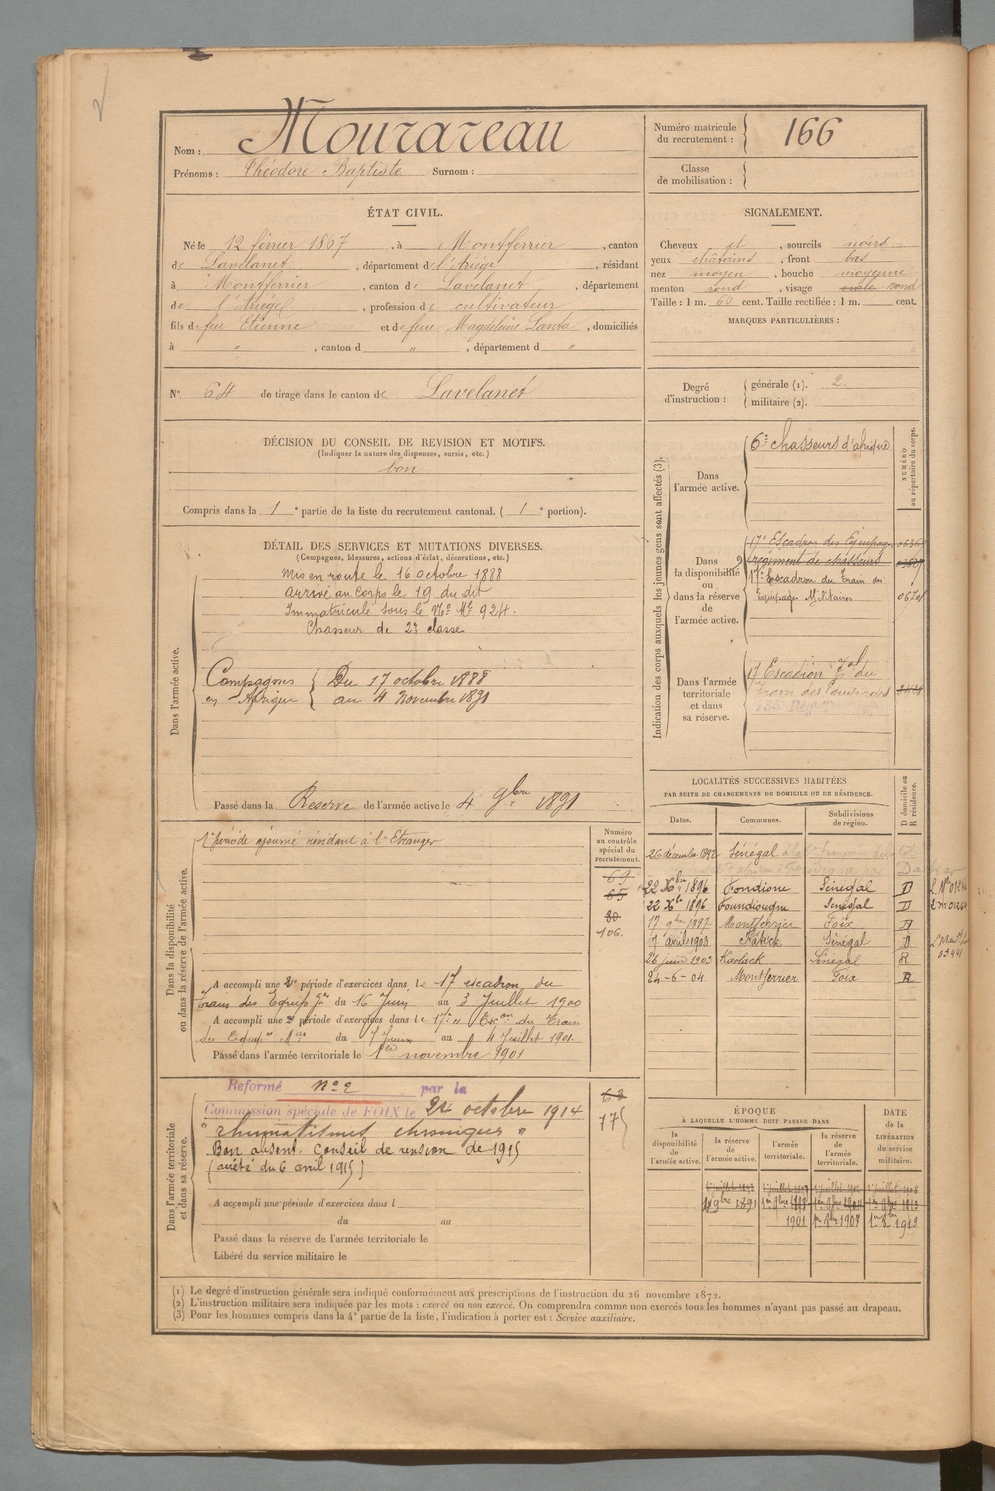 Nom : Mourareau
Prénoms : Théodore Baptiste Surnom :
Numéro matricule du recrutement : 166
Classe de mobilisation :
ÉTAT CIVIL.
Né le 12 février 1867, à Montferrier, canton
de Lavelanet, département de l'Ariège, résidant
à Montferrier, canton de Lavelanet, département
de l'Ariège, profession de cultivateur
fils de feu Etienne et de feue Magdeleine Santa, domiciliés
à " , canton d " , département d "
SIGNALEMENT.
Cheveux et , sourcils noirs
yeux châtains , front bas
nez moyen , bouche moyenne
menton rond , visage ovale rond
Taille : 1 m. 60 cent. Taille rectifiée : 1 m. cent.
MARQUES PARTICULIÈRES :
N° 64 de tirage dans le canton de Lavelanet
Degré d'instruction : générale (1). 2.
militaire (2).
DÉCISION DU CONSEIL DE REVISION ET MOTIFS.
(Indiquer la nature des dispenses, sursis, etc.)
bon
Compris dans la 1e partie de la liste du recrutement cantonal. ( 1e portion).
DÉTAIL DES SERVICES ET MUTATIONS DIVERSES.
(Campagnes, blessures, actions d'éclat, décorations, etc.)
Dans l'armée active.
Mis en route le 16 octobre 1888
arrivé au corps le 19 du dit
Immatriculé sous le No Mle 924.
Chasseur de 2e classe
Campagnes en Afrique
Du 17 octobre 1888
au 4 Novembre 1891
Passé dans la Réserve de l'armée active le 4 9bre 1891
Indication des corps auxquels les jeunes gens sont affectés (3).
NUMÉRO au répertoire du corps.
Dans l'armée active.
6e chasseurs d'afrique
Dans la disponibilité ou dans la réserve de l'armée active.
17e Escadron des Equipages
régiment de chasseurs
17e Escadron du Train des
Equipages Militaires
Dans l'armée territoriale et dans sa réserve.
17 Escadron Tal du
Train des Equipages
LOCALITÉS SUCCESSIVES HABITÉES
PAR SUITE DE CHANGEMENTS DE DOMICILE OU DE RÉSIDENCE.
D domicile ou R résidence.
Dates. Communes. Subdivisions de région.
26 décembre 1892 Sénégal
22 Xbre 1896 Fondioune Sénégal D
22 Xbre 1896 Foundiougne Sénégal D
17 9bre 1897 Montferrier Foix D
17 avril 1903 Fatick Sénégal D
26 juin 1903 Kaolack Sénégal R
24-6-04 Montferrier Foix R
Dans la disponibilité ou dans la réserve de l'armée active.
Numéro au contrôle spécial du recrutement.
1e période ajourné résidant à l'Etranger
69
65
80
106.
A accompli une 2e période d'exercices dans le 17 escadron du
train des Equip. du 16 Juin au 3 Juillet 1900
A accompli une 2e période d'exercices dans le 17e Escon du Train
des Equip. Mres du 7 Juin au 4 Juillet 1901.
Passé dans l'armée territoriale le 1er novembre 1901
Dans l'armée territoriale et dans sa réserve.
Reformé n° 2 par la
Commission spéciale de FOIX le 24 octobre 1914
"rhumatismes chroniques"
Bon absent. Conseil de revision de 1915
(arrêté du 6 avril 1915)
68
175
A accompli une période d'exercices dans l
du au
Passé dans la réserve de l'armée territoriale le
Libéré du service militaire le
ÉPOQUE
À LAQUELLE L'HOMME DOIT PASSER DANS
DATE DE LA LIBÉRATION du service militaire.
la disponibilité de l'armée active.
la réserve de l'armée active.
l'armée territoriale.
la réserve de l'armée territoriale.
1901 1er 9bre 1907 1er 9bre 1913
(1) Le degré d'instruction générale sera indiqué conformément aux prescriptions de l'instruction du 26 novembre 1872.
(2) L'instruction militaire sera indiquée par les mots : exercé ou non exercé. On comprendra comme non exercés tous les hommes n'ayant pas passé au drapeau.
(3) Pour les hommes compris dans la 4e partie de la liste, l'indication à porter est : Service auxiliaire.